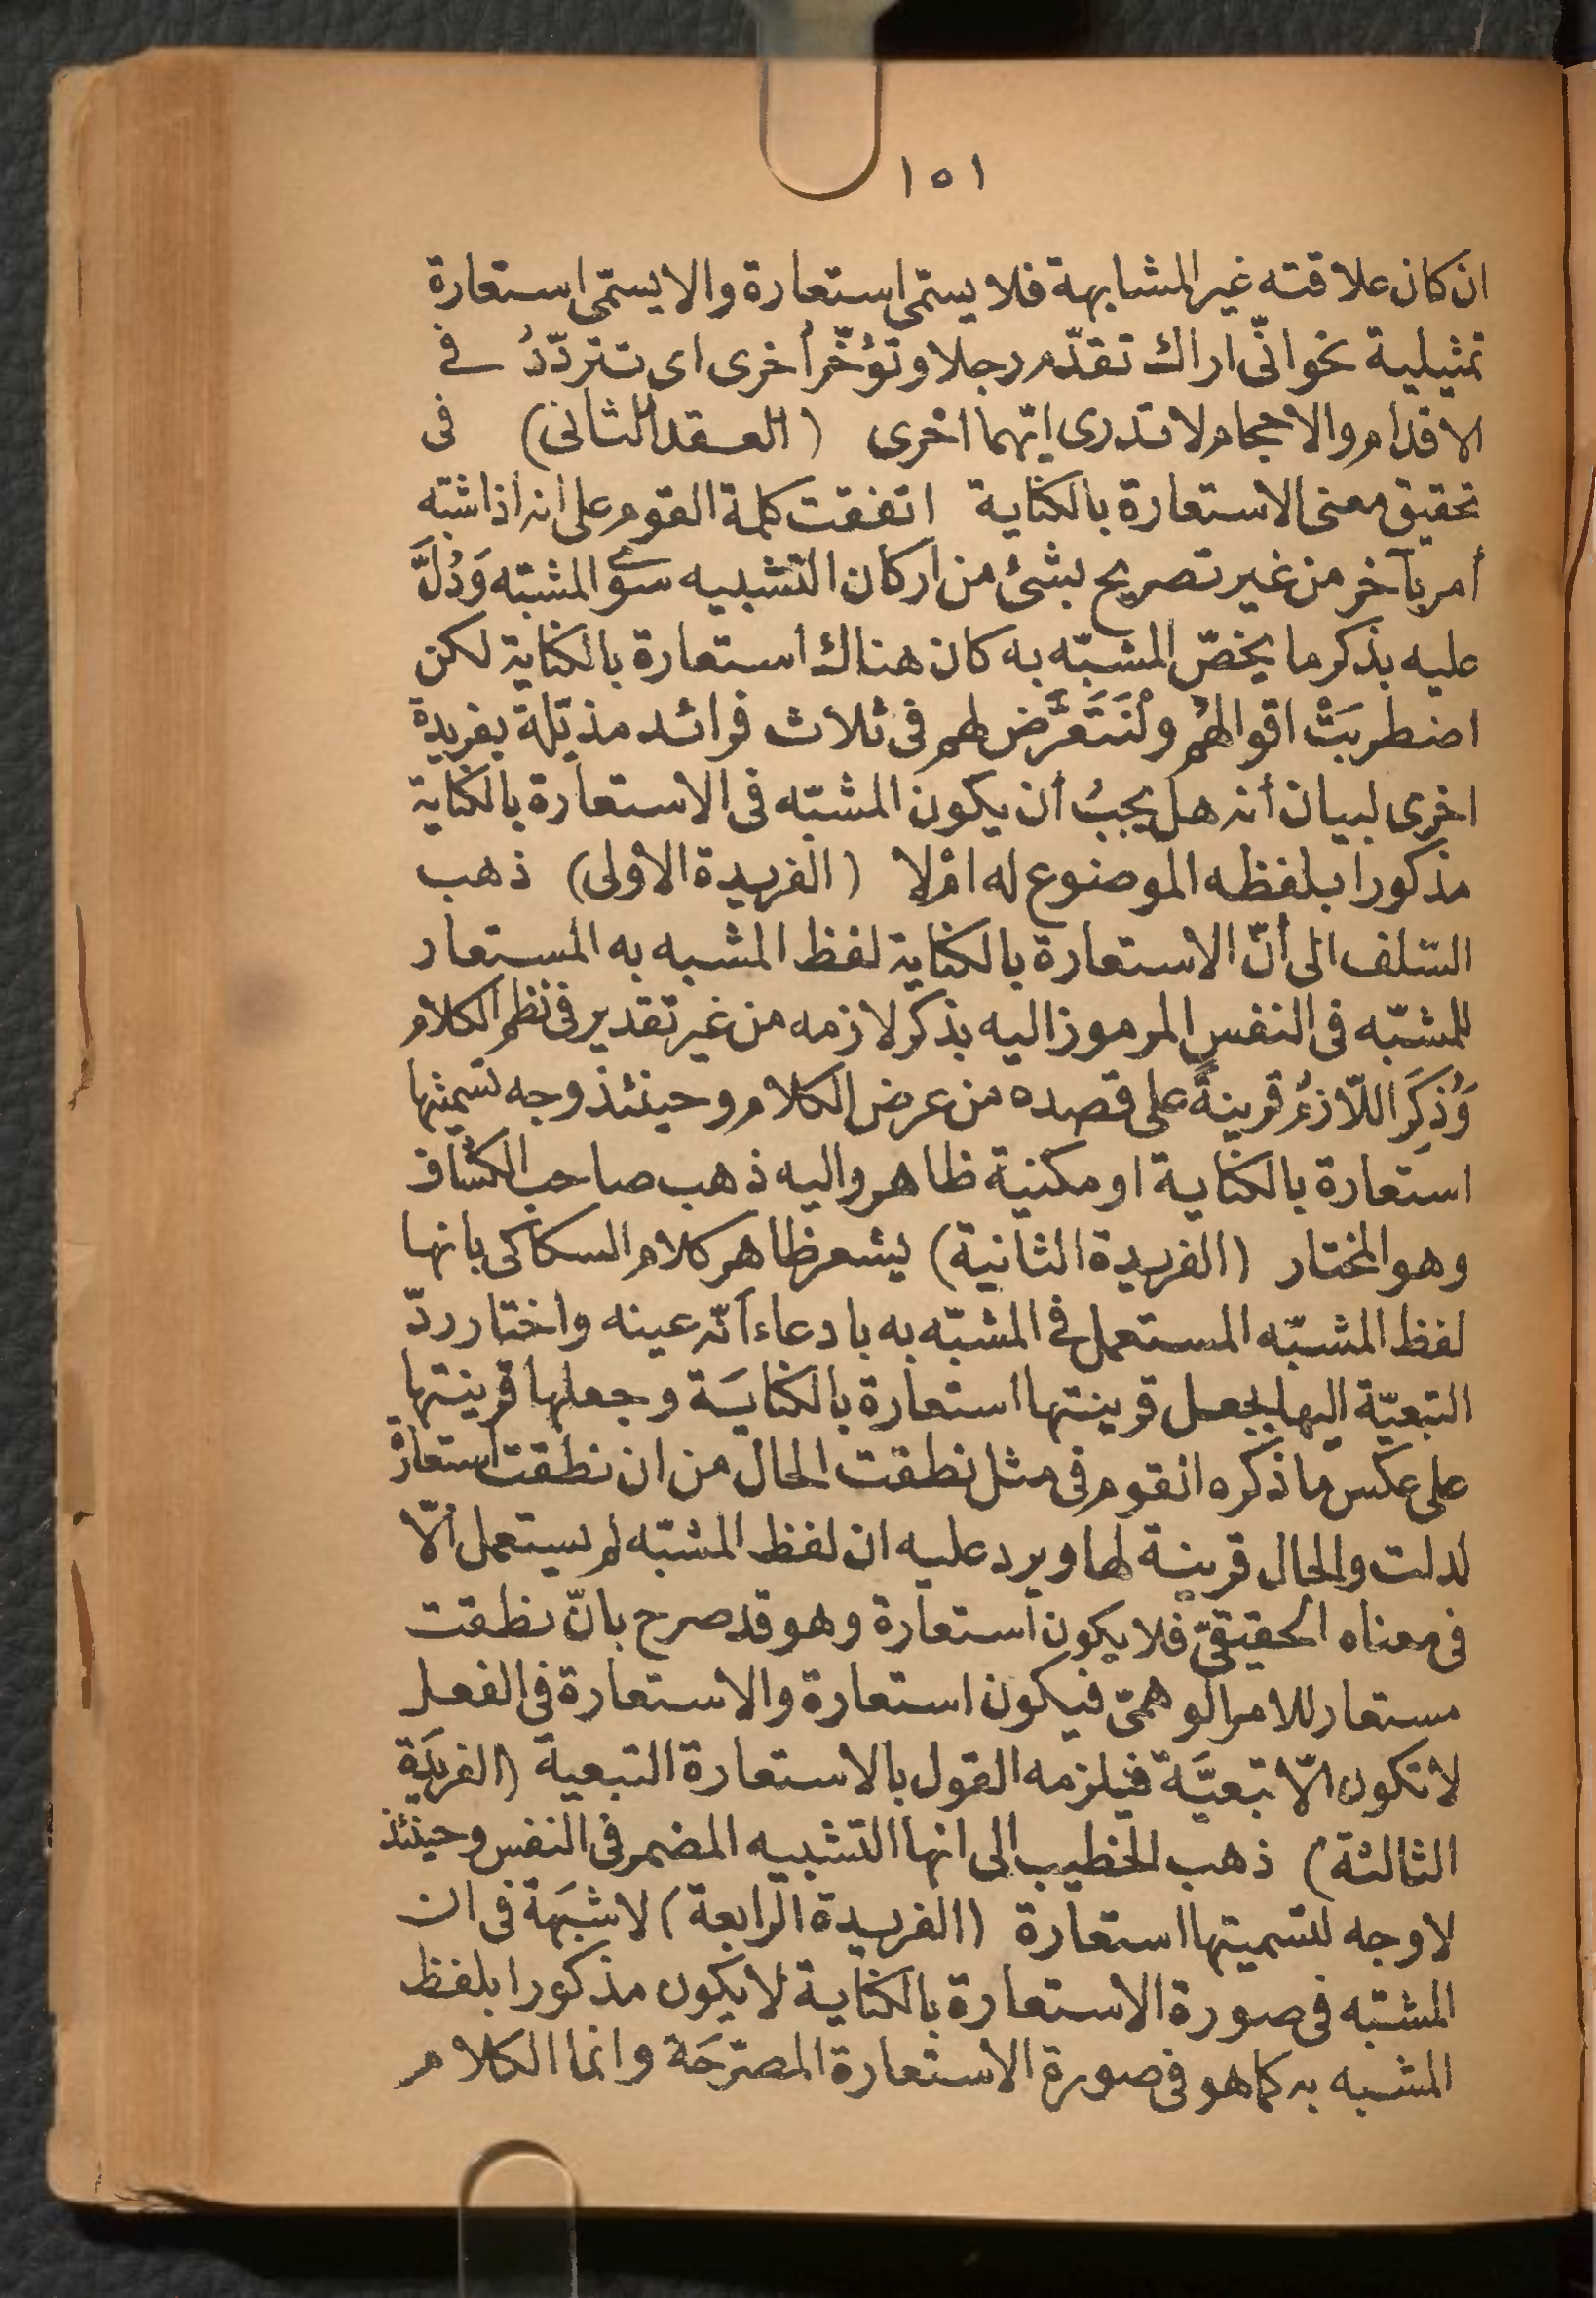 ١٥١
ان كان علاقته غير المشابهة فلا يسمّى استعارة والا يسمّى استعارة
تمثيلية نحو انّى اراك تقدّم رجلا وتؤخّر أخرى اى تتردّدُ فى
الاقدام والاحجام لا تدرى ايّهما احرى (العقد الثانى) فى
تحقيق معنى الاستعارة بالكناية اتفقت كلمة القوم على انه اذا شبّه
أمر بآخر من غير تصريح بشئ من اركان التشبيه سوى المشبّه وَدُلَّ
عليه بذكر ما يخصّ المشبّه به كان هناك استعارة بالكناية لكن
اضطربَتْ اقوالهُم ولْنَتَعَرَّض لهم فى ثلاث فرائد مذيّلة بفريدة
اخرى لبيان أنه هل يجبُ أن يكون المشبّه فى الاستعارة بالكناية
مذكورا بلفظه الموضوع له امْ لا (الفريدة الاولى) ذهب
السّلف الى أنّ الاستعارة بالكناية لفظ المشبه به المستعار
للمشبّه فى النفس المرموز اليه بذكر لازمه من غير تقدير فى نظم الكلام
وَذُكِرَ اللّازمُ قرينةً على قصده من عرض الكلام وحينئذ وجه تسميتها
استعارة بالكناية او مكنية ظاهر واليه ذهب صاحب الكشاف
وهو المختار (الفريدة الثانية) يشعر ظاهر كلام السكاكى بانها
لفظ المشبّه المستعمل فى المشبّه به بادعاء أنّه عينه واختار ردّ
التبعيّة اليها بجعل قرينتها استعارة بالكناية وجعلها قرينتها
على عكس ما ذكره القوم فى مثل نطقت الحال من ان نطقت استعارة
لدلت والحال قرينة لها ويرد عليه ان لفظ المشبّه لم يستعمل الّا
فى معناه الحقيقىّ فلا يكون استعارة وهو قد صرح بانّ نطقت
مستعار للامر الوهمىّ فيكون استعارة والاستعارة فى الفعل
لا تكون الّا تبعيَّة فيلزمه القول بالاستعارة التبعية (الفريدَة
الثالثة) ذهب الخطيب الى انها التشبيه المضمر فى النفس وحينئذ
لا وجه لتسميتها استعارة (الفريدة الرابعة) لا شبَهة فى ان
المشبّه فى صورة الاستعارة بالكناية لا يكون مذكورا بلفظ
المشبه به كما هو فى صورة الاستعارة المصرّحَة وانما الكلام